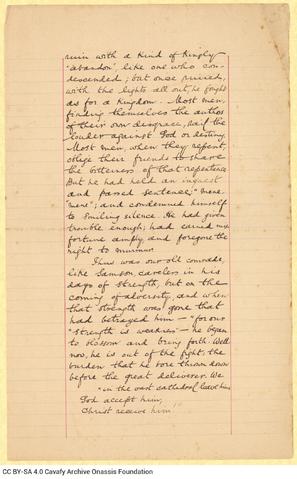 ruin with a kind of kingly
"abandon", like one who con-
descended; but once ruined,
with the lights all out, he fought
as for a kingdom. Most men,
finding themselves the authors
of their own disgrace, rail the
louder against God or destiny.
Most men, when they repent,
oblige their friends to share
the bitterness of that repentance.
But he had held an inquest
and passed sentence; "mene,
"mene"; and condemned himself
to smiling silence. He had given
trouble enough; had earned mis-
fortune amply, and foregone the
right to murmur.
Thus was our old comrade,
like Samson, careless in his
days of strength, but on the
coming of adversity, and when
that strength was gone that
had betrayed him — "for our
"strength is weakness" — he began
to blossom and bring forth. Well
now, he is out of the fight, the
burden that he bore thrown down
before the great deliverer. We
"in the vast cathedral leave him
God accept him,
Christ receive him
CC BY-SA 4.0 Cavafy Archive Onassis Foundation